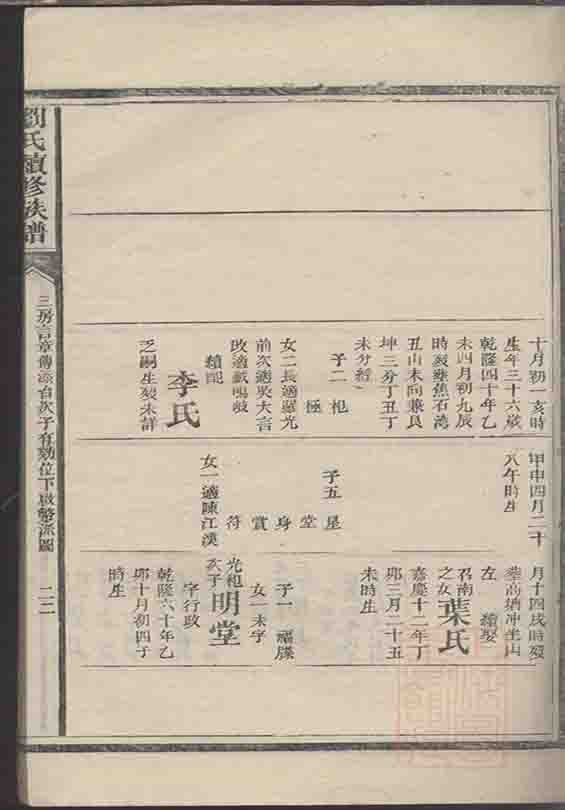 劉氏續修族譜
三房言章傳添自次子有勷位下啟
派圖
二二
十月初一亥時
生年三十六歲
乾隆四十年乙
未四月初九辰
時歿葬焦石灣
丑山未向兼艮
坤三分丁丑丁
未分經
子二 杞
極
女二長適羅光
前次適吳大言
改適戴鳴岐
續配
李氏
乏嗣生歿未詳
甲申四月二十
八午時生
子五 星
堂
身
賞
符
女一適陳江漢
月十四戌時歿
葬高
冲坐山
左 續娶
召南
葉氏
之女
嘉慶十二年丁
卯三月二十五
未時生
子一 福牒
女一未字
光袍
次子
明堂
字行政
乾隆六十年乙
卯十月初四子
時生